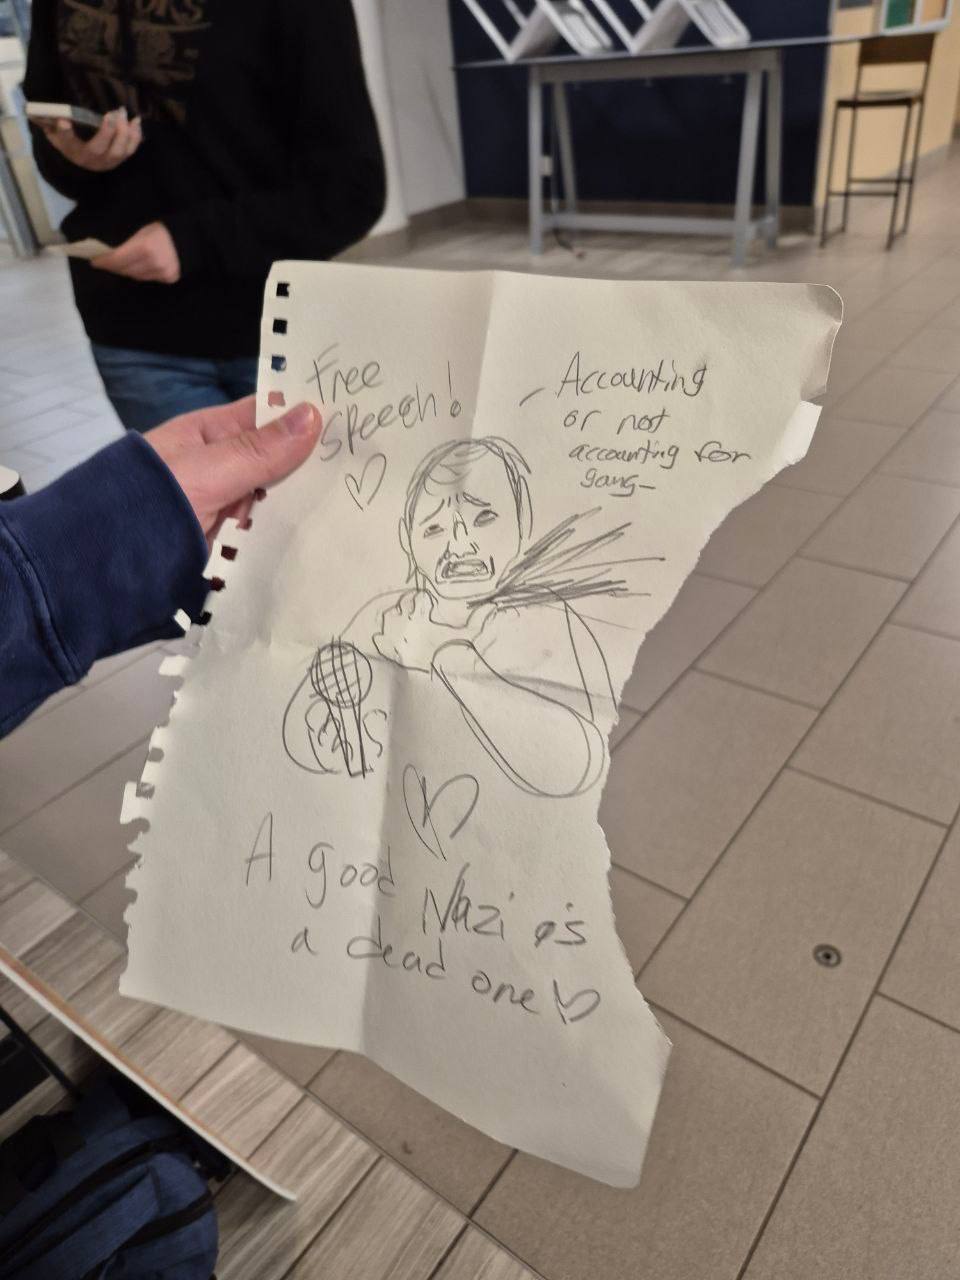 Free
Speech!
Accounting
or not
accounting for
gang-
A good Nazi is
a dead one